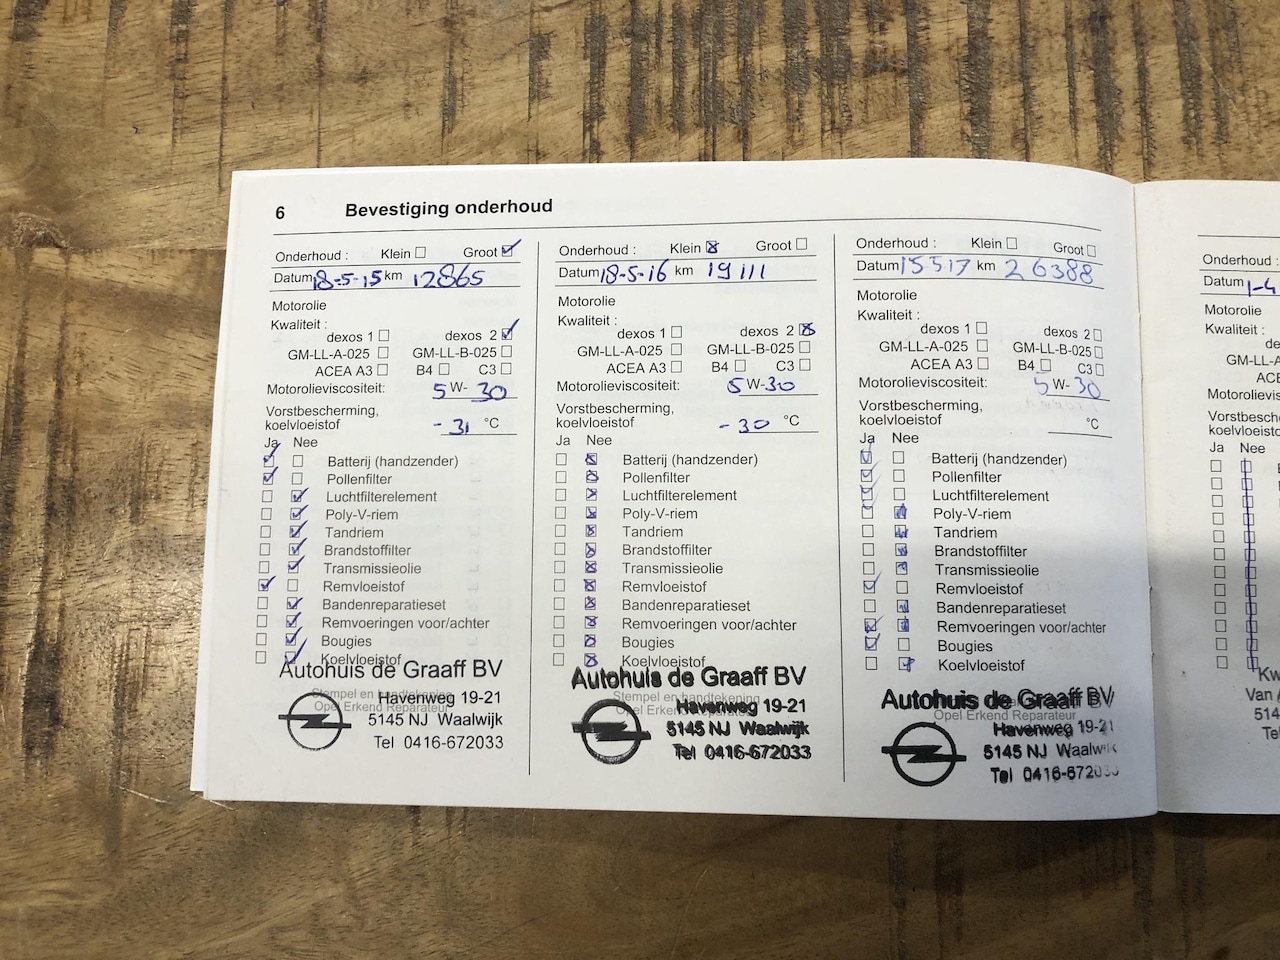 6 Bevestiging onderhoud
Onderhoud : Klein Groot
Datum 18-5-15 km 12865
Motorolie
Kwaliteit :
dexos 1 dexos 2
GM-LL-A-025 GM-LL-B-025
ACEA A3 B4 C3
Motorolieviscositeit: 5 W- 30
Vorstbescherming,
koelvloeistof - 31 °C
Ja Nee
Batterij (handzender)
Pollenfilter
Luchtfilterelement
Poly-V-riem
Tandriem
Brandstoffilter
Transmissieolie
Remvloeistof
Bandenreparatieset
Remvoeringen voor/achter
Bougies
Koelvloeistof
Autohuis de Graaff BV
Stempel en handtekening
Opel Erkend Reparateur
Havenweg 19-21
5145 NJ Waalwijk
Tel 0416-672033
Onderhoud : Klein Groot
Datum 18-5-16 km 19111
Motorolie
Kwaliteit :
dexos 1 dexos 2
GM-LL-A-025 GM-LL-B-025
ACEA A3 B4 C3
Motorolieviscositeit: 5 W- 30
Vorstbescherming,
koelvloeistof - 30 °C
Ja Nee
Batterij (handzender)
Pollenfilter
Luchtfilterelement
Poly-V-riem
Tandriem
Brandstoffilter
Transmissieolie
Remvloeistof
Bandenreparatieset
Remvoeringen voor/achter
Bougies
Koelvloeistof
Autohuis de Graaff BV
Stempel en handtekening
Opel Erkend Reparateur
Havenweg 19-21
5145 NJ Waalwijk
Tel 0416-672033
Onderhoud : Klein Groot
Datum 15 5 17 km 26388
Motorolie
Kwaliteit :
dexos 1 dexos 2
GM-LL-A-025 GM-LL-B-025
ACEA A3 B4 C3
Motorolieviscositeit: 5 W- 30
Vorstbescherming,
koelvloeistof °C
Ja Nee
Batterij (handzender)
Pollenfilter
Luchtfilterelement
Poly-V-riem
Tandriem
Brandstoffilter
Transmissieolie
Remvloeistof
Bandenreparatieset
Remvoeringen voor/achter
Bougies
Koelvloeistof
Autohuis de Graaff BV
Stempel en handtekening
Opel Erkend Reparateur
Havenweg 19-21
5145 NJ Waalwijk
Tel 0416-672033
Onderhoud :
Datum 1-4
Motorolie
Kwaliteit :
de
GM-LL-A
ACE
Motorolievis
Vorstbesche
koelvloeisto
Ja Nee
Kw
Van
514
Te